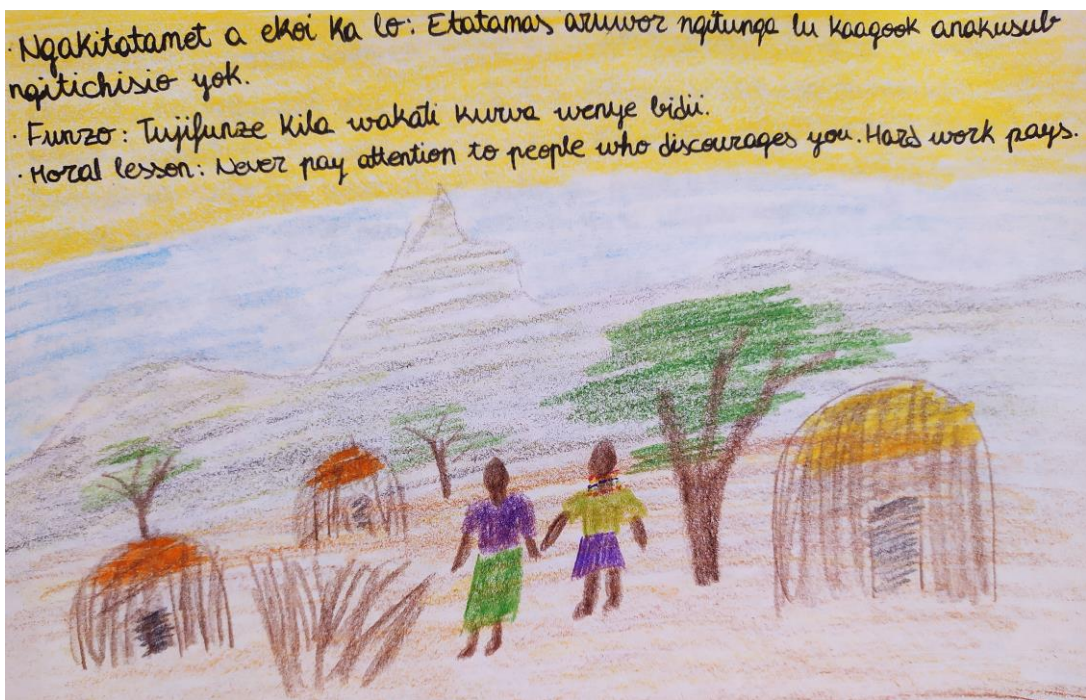 · Ngakitatamet a ekoi ka lo: Etatamas aruwor ngitunga lu kaagook anakusub
ngitichisio yok.
· Funzo: Tujifunze kila wakati kurwa wenye bidii.
· Moral lesson: Never pay attention to people who discourages you. Hard work pays.